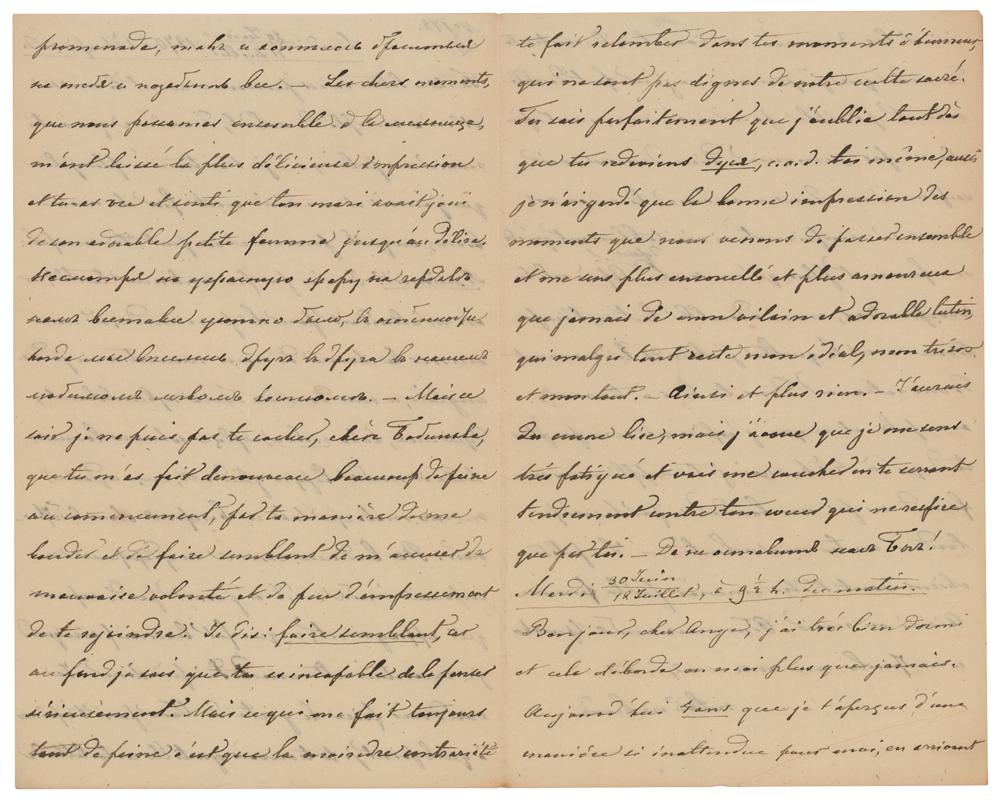 promenade, мать и хотелось
на тебя и позабыть все. — Les chers moments,
que nous passames ensemble d la
m'ont laissé la plus délicieuse impression
et tu as vue et senti que ton mari avait joui
de son adorable petite femme jusqu'au délire.
Несмотря на ужасную жару на
всетаки уютно было, въ особенности
когда мы влились другъ въ друга въ нашемъ
любимомъ костюмѣ. — Mais ce
soir je ne puis pas te cacher, chère
que tu m'as fait denouveau beaucoup de peine
au commencement, par ta manière de me
bouder et de faire semblant de m'accuser de
mauvaise volonté et de peu d'empressement
de te rejoindre. Je dis: faire semblant, car
au fond je sais que tu es incapable de le penser
sérieusement. Mais ce qui me fait toujours
tant de peine c'est que la moindre contrariété
te fait retomber dans tes moments d'humeur,
qui ne sont pas dignes de notre culte sacré.
Tu sais parfaitement que j'oublie tout dès
que tu redeviens, c. a. d. toi même, aussi
je n'ai gardé que la bonne impression des
moments que nous venons de passer ensemble
et me sens plus ensorcellé et plus amoureux
que jamais de mon vilain et adorable lutin,
qui malgré tout reste mon idéal, mon trésor
et mon tout. — Ainsi et plus rien. — J'aurais
du encore lire, mais j'avoue que je me sens
très fatigué et vais me coucher en te serrant
tendrement contre ton coeur qui ne respire
que par toi. — Да
Mardi 30 Juin / 12 Juillet, à 9 ½ h. du matin.
Bonjour, cher Ange, j'ai très bien dormi
et cela déborde en moi plus que jamais.
Aujourd'hui ans que je t'aperçus d'une
manière si inattendue pour moi, en arrivant